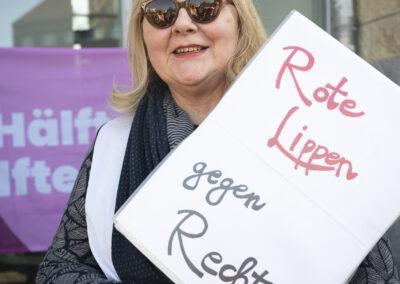 Hälft
lfte
Rote
Lippen
gegen
Rechts